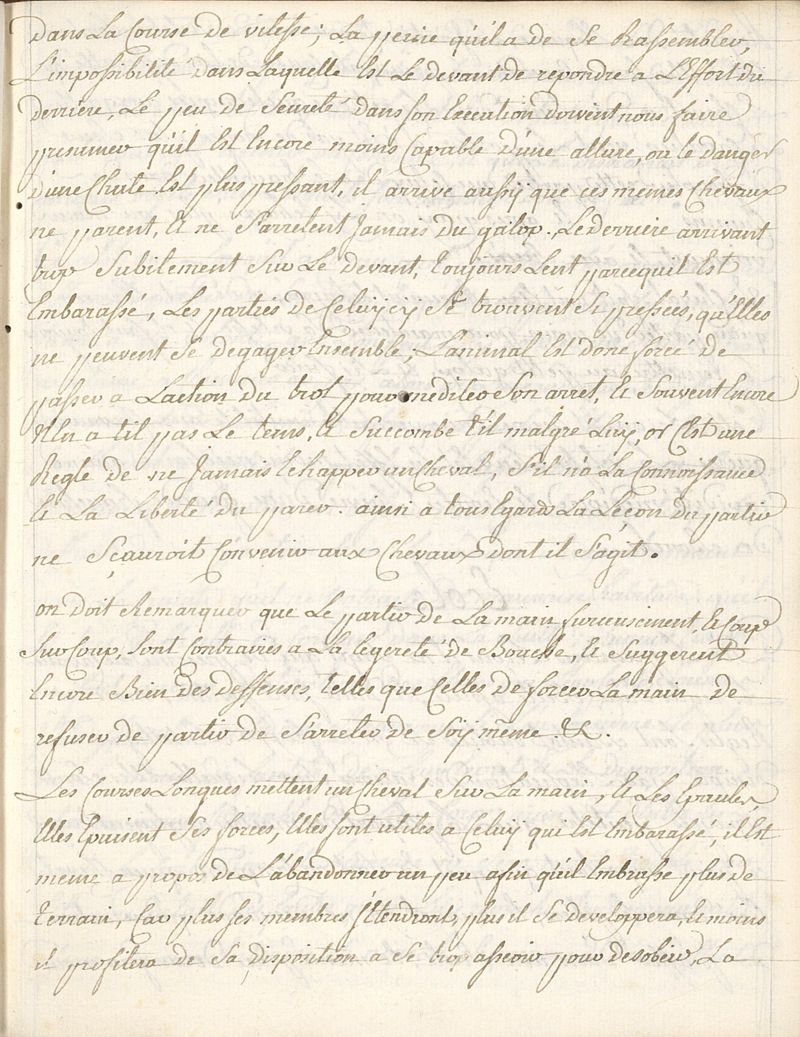 dans La Course de vitesse; La peine qu'il a de Se Rassembler,
L'impossibilité dans Laquelle Est Le devant de repondre a L'Effort du
derriere, Le peu de Seureté dans son Execution doivent nous faire
presumer qu'il Est Encore moins Capable d'une allure, ou le danger
d'une Chute Est plus pressant, il arrive aussy que ces memes Chevaux
ne parent, & ne S'arretent Jamais du galop. Le derriere arrivant
trop Subitement Sur Le devant, toujours Lent parcequil Est
Embarassé, Les parties de Celuycy Se trouvent Si pressées, qu'Elles
ne peuvent Se degager Ensemble; L'animal Est donc forcé de
passer a L'action du trot pour mediter Son arret, & Souvent Encore
N'En a til pas Le tems, & Succombe t'il malgré Luy, or C'Est une
Regle de ne Jamais Echapper un Cheval, S'il n'a La Connoissance
& La Liberté du parer. ainsi a tous Egards La Leçon du partir
ne Sçauroit Convenir aux Chevaux dont il S'agit.
on doit Remarquer que Le partir de La main furieusement, & Coup
Sur Coup, Sont Contraires a La legereté de Bouche, & Suggerent
Encore Bien des deffenses, telles que Celles de forcer La main de
refuser de partir de S'arreter de Soy même &c.
Les Courses Longues mettent un Cheval Sur La main, & Les Epaules,
Elles Epuisent Ses forces, Elles sont utiles a Celuy qui Est Embarassé, il Est
meme a propos de L'abandonner un peu afin qu'il Embrasse plus de
terrain, Car plus ses membres S'Etendront, plus il Se developpera, & moins
il profitera de Sa disposition a Se trop asseoir pour desobeir, La